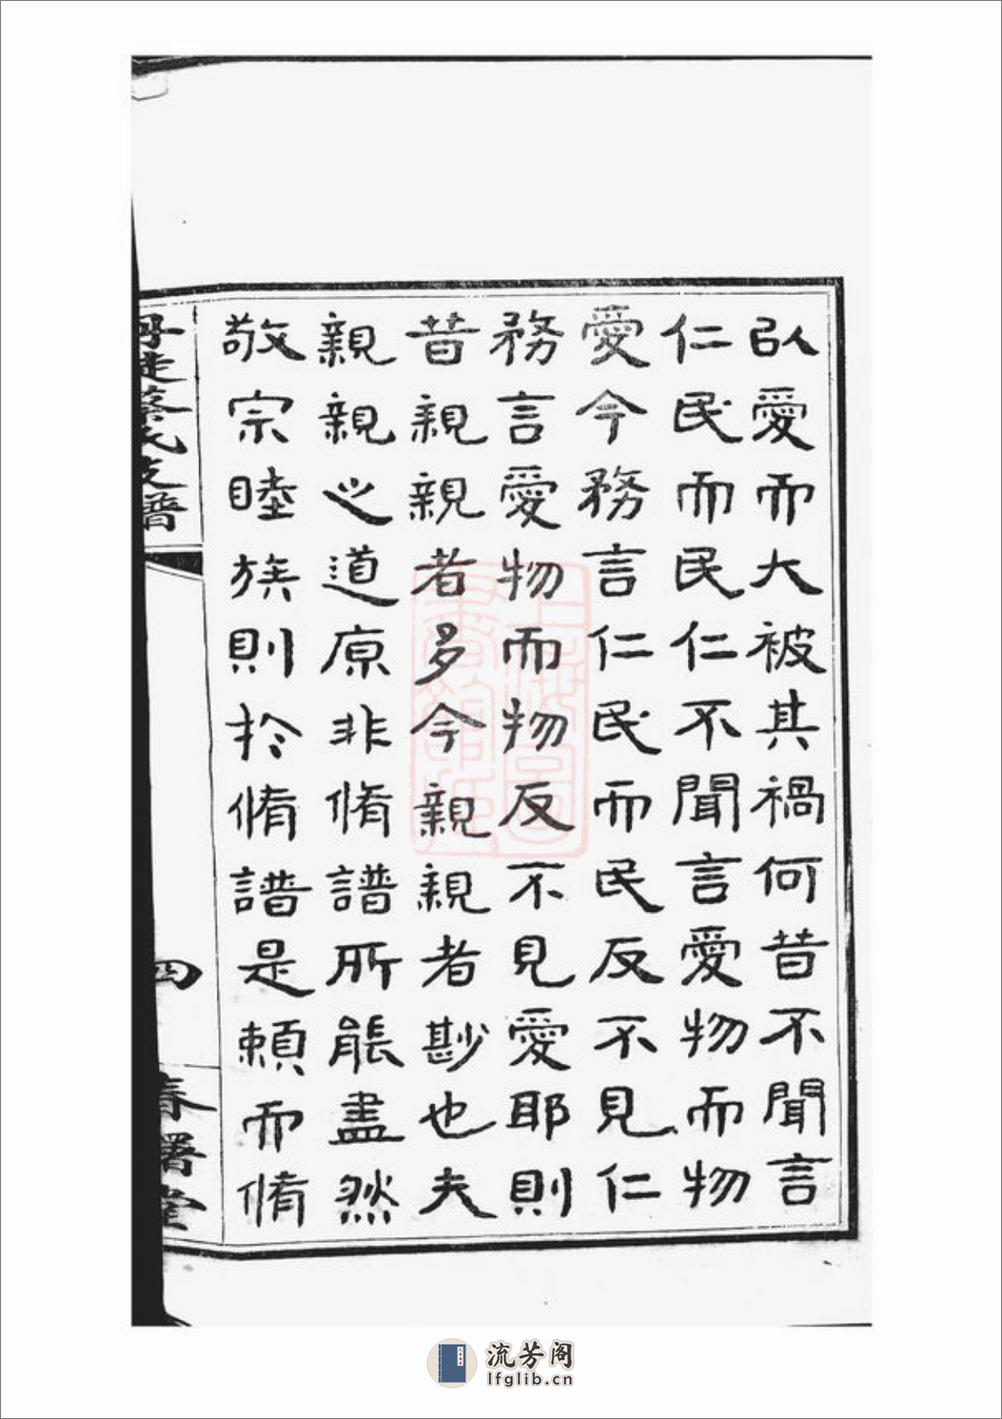 以愛而大被其禍何昔不聞言
仁民而民仁不聞言愛物而物
愛今務言仁民而民反不見仁
務言愛物而物反不見愛耶則
昔親親者多今親親者尠也夫
親親之道原非脩譜所能盡然
敬宗睦族則於脩譜是賴而脩
丹徒蔡氏支譜
四
春署堂
上海圖書館藏
流芳阁
lfglib.cn